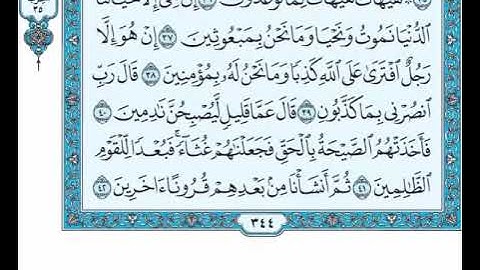 هَيْهَاتَ هَيْهَاتَ لِمَا تُوعَدُونَ ٣٦ إِنْ هِيَ إِلَّا حَيَاتُنَا
ٱلدُّنْيَا نَمُوتُ وَنَحْيَا وَمَا نَحْنُ بِمَبْعُوثِينَ ٣٧ إِنْ هُوَ إِلَّا
رَجُلٌ ٱفْتَرَىٰ عَلَى ٱللَّهِ كَذِبًا وَمَا نَحْنُ لَهُۥ بِمُؤْمِنِينَ ٣٨ قَالَ رَبِّ
ٱنصُرْنِي بِمَا كَذَّبُونِ ٣٩ قَالَ عَمَّا قَلِيلٍ لَّيُصْبِحُنَّ نَٰدِمِينَ ٤٠
فَأَخَذَتْهُمُ ٱلصَّيْحَةُ بِٱلْحَقِّ فَجَعَلْنَٰهُمْ غُثَآءً ۚ فَبُعْدًا لِّلْقَوْمِ
ٱلظَّٰلِمِينَ ٤١ ثُمَّ أَنشَأْنَا مِنۢ بَعْدِهِمْ قُرُونًا ءَاخَرِينَ ٤٢
٣٤٤
٣٥